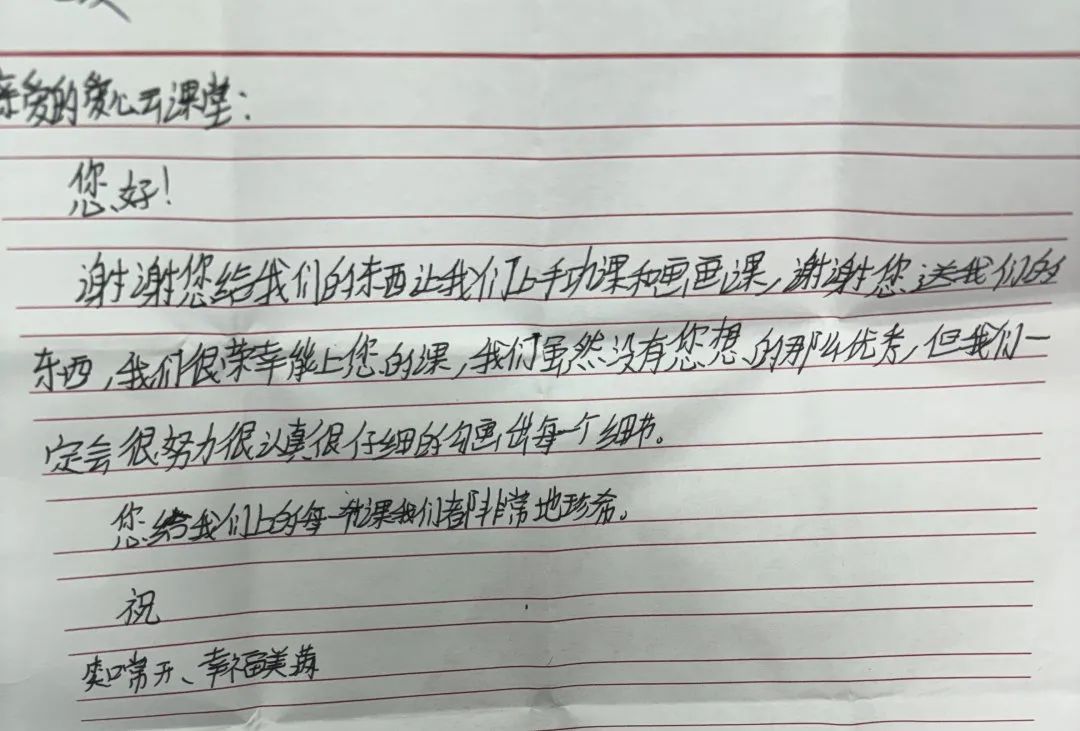 亲爱的爱心云课堂：
您好！
谢谢您给我们的东西让我们上手功课和画画课，谢谢您送我们的
东西，我们很荣幸能上您的课，我们虽然没有您想的那么优秀，但我们一
定会很努力很认真很仔细的勾画出每一个细节。
您给我们上的每一节课我们都非常地珍希。
祝
笑口常开、幸福美满